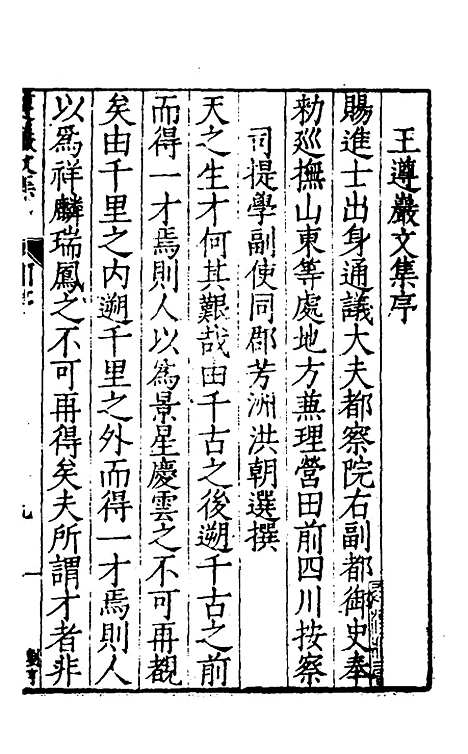 王遵巖文集序
賜進士出身通議大夫都察院右副都御史奉
勑巡撫山東等處地方兼理營田前四川按察
司提學副使同郡芳洲洪朝選撰
天之生才何其艱哉由千古之後遡千古之前
而得一才焉則人以為景星慶雲之不可再覩
矣由千里之内遡千里之外而得一才焉則人
以為祥麟瑞鳳之不可再得矣夫所謂才者非